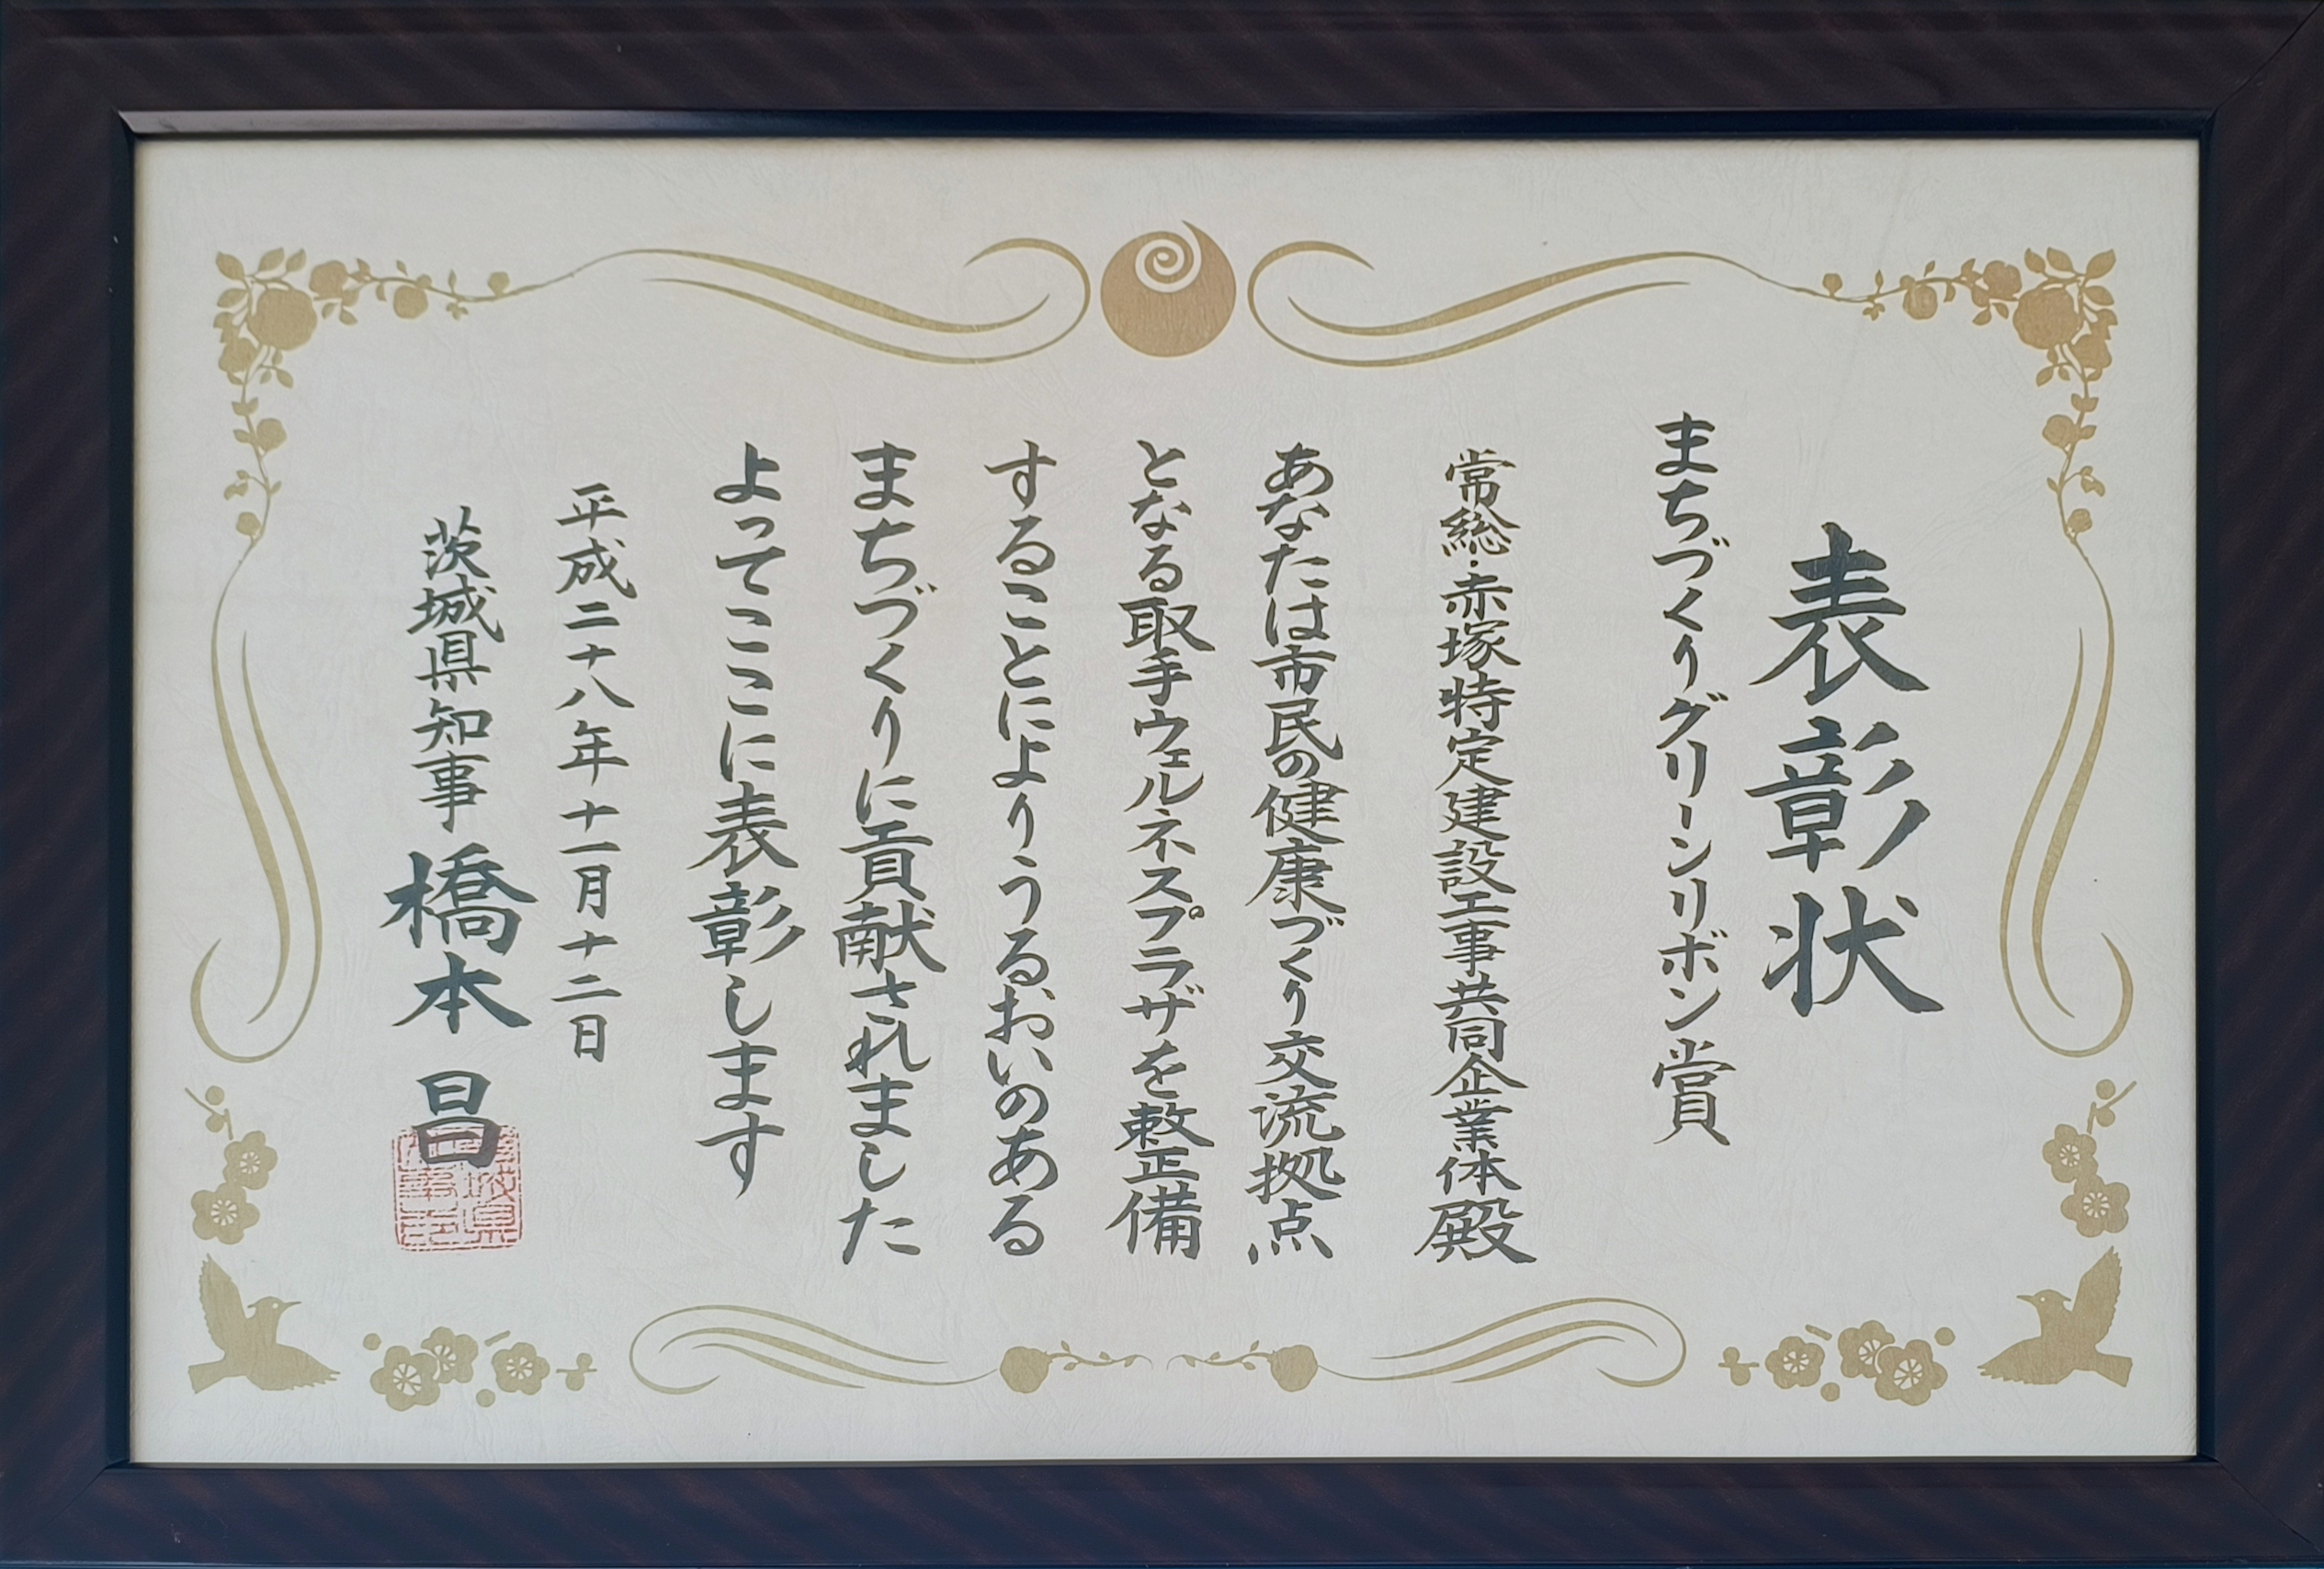 表彰状
まちづくりグリーンリボン賞
常総・赤塚特定建設工事共同企業体殿
あなたは市民の健康づくり交流拠点
となる取手ウェルネスプラザを整備
することによりうるおいのある
まちづくりに貢献されました
よってここに表彰します
平成二十八年十一月十二日
茨城県知事 橋本 昌